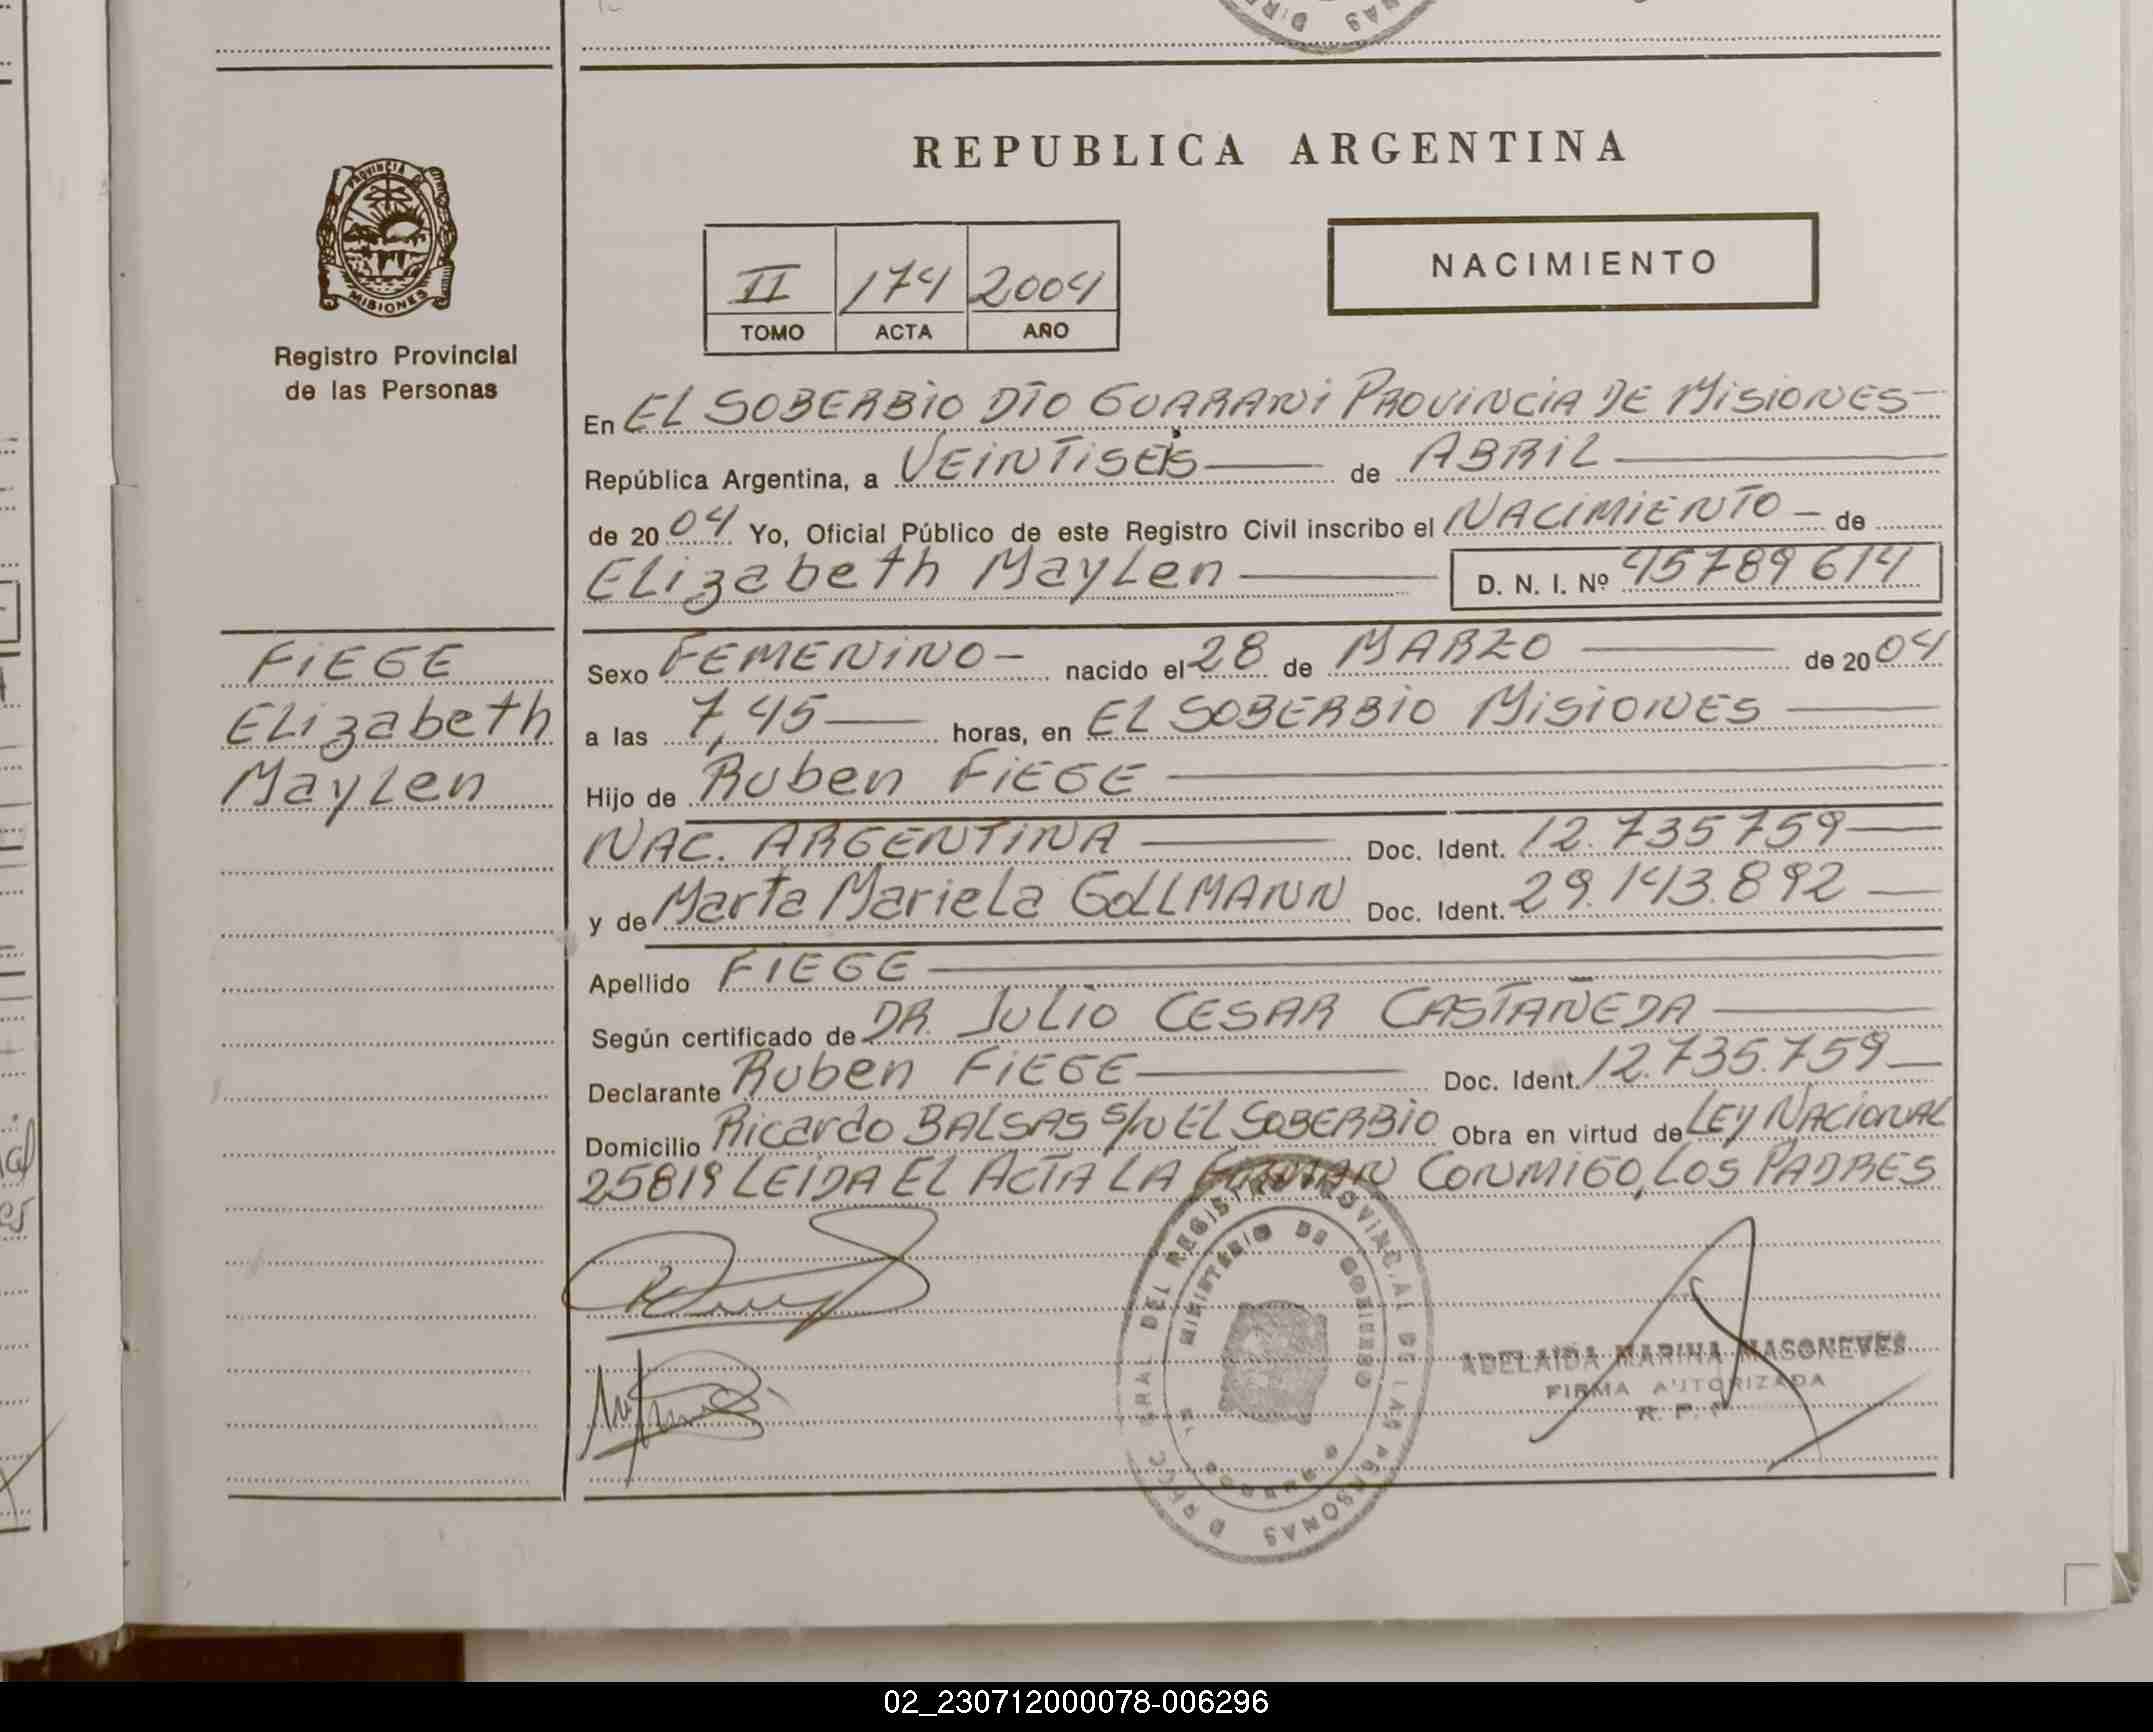 REPUBLICA ARGENTINA
PROVINCIA DE
MISIONES
Registro Provincial
de las Personas
II 174 2004
TOMO ACTA AÑO
NACIMIENTO
En EL SOBERBIO DTO GUARANI PROVINCIA DE MISIONES
República Argentina, a VEINTISEIS de ABRIL
de 2004 Yo, Oficial Público de este Registro Civil inscribo el NACIMIENTO de
Elizabeth Maylen D. N. I. Nº 45789614
FIEGE
Elizabeth
Maylen
Sexo FEMENINO nacido el 28 de MARZO de 2004
a las 7,45 horas, en EL SOBERBIO MISIONES
Hijo de Ruben FIEGE
NAC. ARGENTINA Doc. Ident. 12.735759
y de Marta Mariela GOLLMANN Doc. Ident. 29.143.892
Apellido FIEGE
Según certificado de DR. JULIO CESAR CASTAÑEDA
Declarante Ruben FIEGE Doc. Ident. 12.735.759
Domicilio Ricardo BALSAS S/N EL SOBERBIO Obra en virtud de LEY NACIONAL
25819 LEIDA EL ACTA LA FIRMAN CONMIGO, LOS PADRES
DEL REGISTRO PROVINCIAL DE LAS PERSONAS
MINISTERIO DE GOBIERNO
ADELAIDA MARINA MASONEVES
FIRMA AUTORIZADA
R. P. P.
02_230712000078-006296